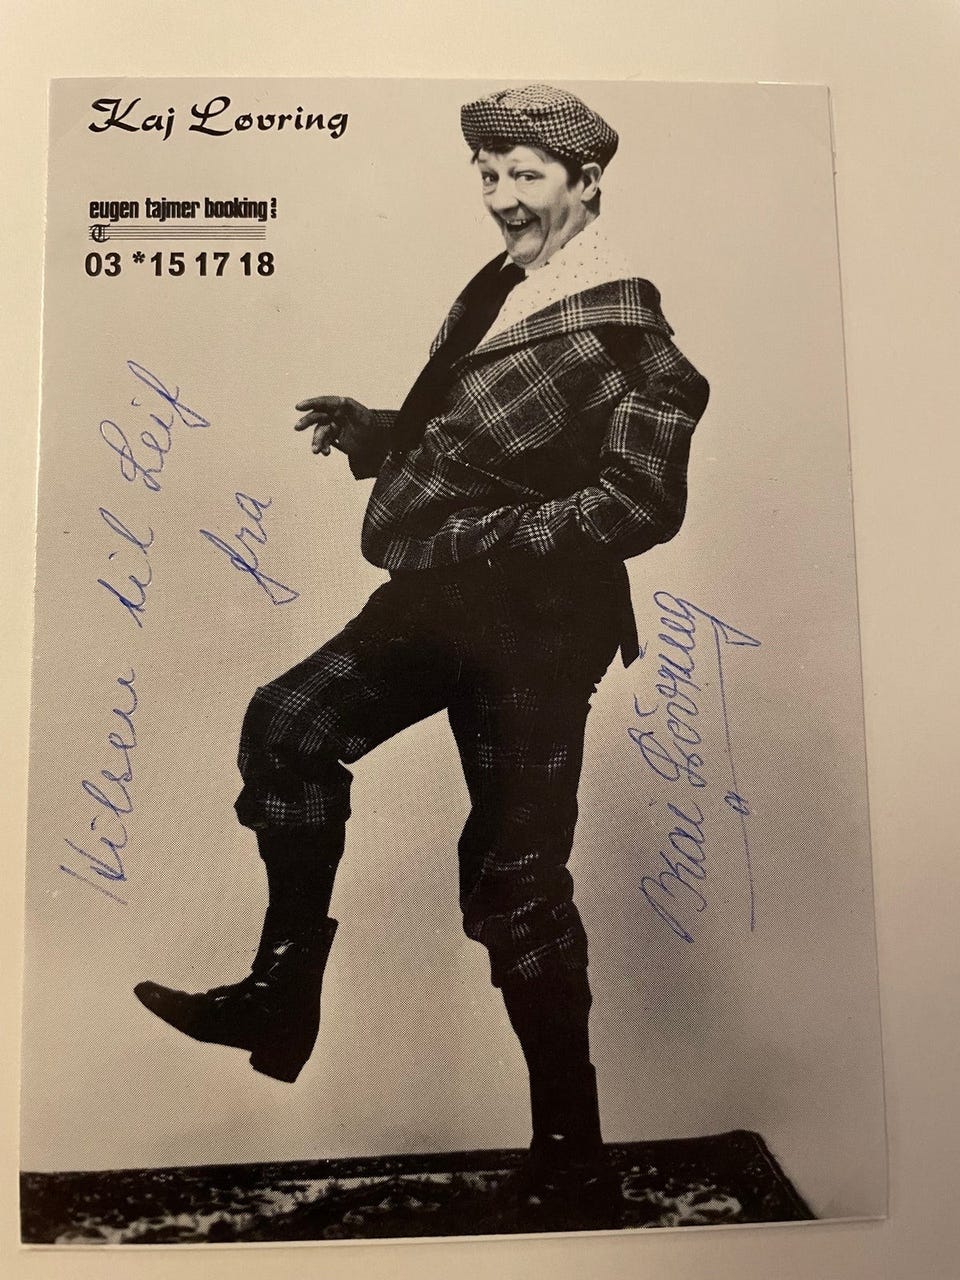 Kaj Løvring
eugen tajmer booking as
T
03 *15 17 18
Hilsen til Leif
fra
Kai Løvring